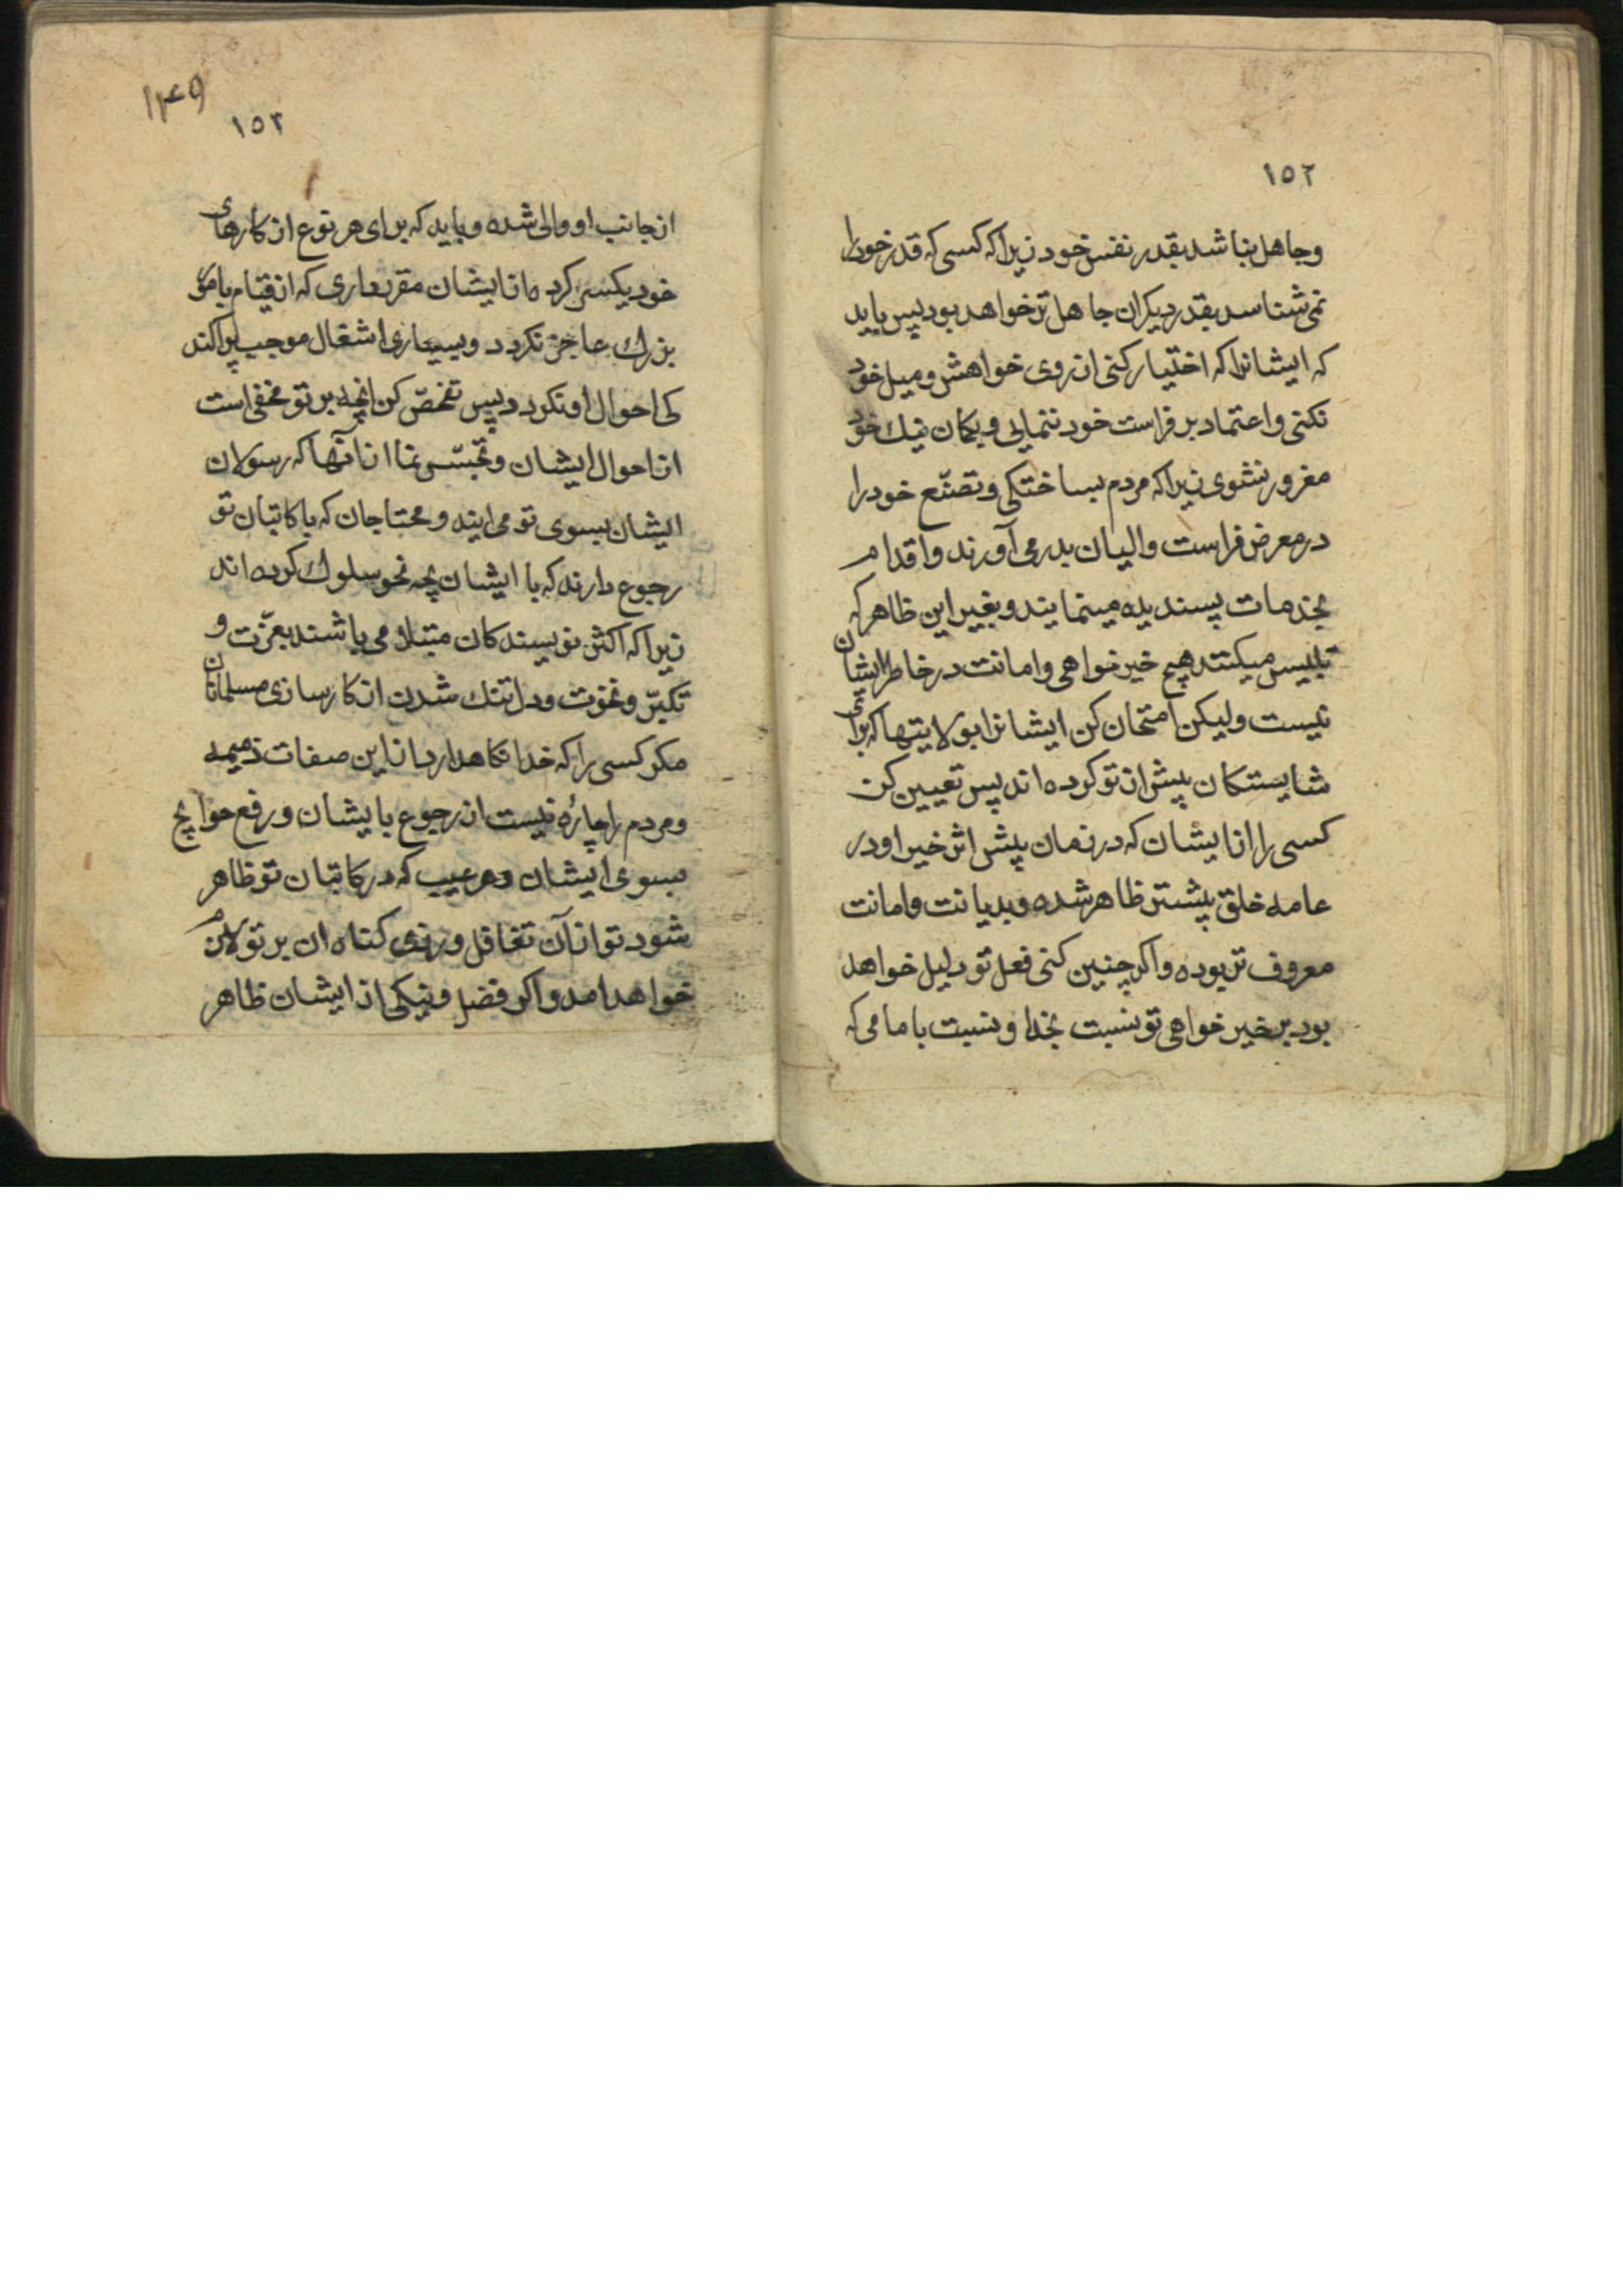 ١٥٢
وجاهل نباشد بقدر نفس خود زیرا که کسی که قدر خود را
نمی شناسد بقدر دیکران جاهل تر خواهد بود پس باید
که ایشانرا که اختیار کنی از روی خواهش و میل خود
نکنی و اعتماد بر فراست خود ننمایی و بکمان نیك خود
مغرور نشوی زیرا که مردم بساختکی و تصنّع خود را
در معرض فراست والیان بدر می آورند و اقدام
بخدمات پسندیده مینمایند و بغیر این ظاهر که
تلبیس میکنند هیچ خیر خواهی و امانت در خاطر ایشان
نیست ولیکن امتحان کن ایشانرا بولایتها که برای
شایستکان پیش از تو کرده اند پس تعیین کن
کسی را از ایشان که در زمان پیش اثر خیر او در
عامه خلق پیشتر ظاهر شده و بدیانت و امانت
معروف تر بوده و اکر چنین کنی فعل تو دلیل خواهد
بود بر خیر خواهی تو نسبت بخدا و نسبت بامامی که
١٤٩
١٥٣
از جانب او والی شده و باید که برای هر نوع از کارهای
خود یکسر کرده از ایشان مقرر داری که از قیام بامور
بزرك عاجز نکردد و بسیاری اشغال موجب پراکند
کی احوال او نکردد پس تفحّص کن انچه بر تو مخفی است
از احوال ایشان و تجسّس نما از آنها که رسولان
ایشان بسوی تو می ایند و محتاجان که با کاتبان تو
رجوع دارند که با ایشان بچه نحو سلوك کرده اند
زیرا که اکثر نویسندکان مبتلا می باشند بعزّت و
تکبّر و نخوت و دلتنك شدن از کارسازی مسلمانان
مکر کسی را که خدا نکاهدارد از این صفات ذمیمه
و مردم را چارۀ نیست از رجوع بایشان و رفع حوایج
بسوی ایشان و هر عیب که در کاتبان تو ظاهر
شود تو از آن تغافل ورزی کناه ان بر تو لازم
خواهد امد و اکر فضل و نیکی از ایشان ظاهر